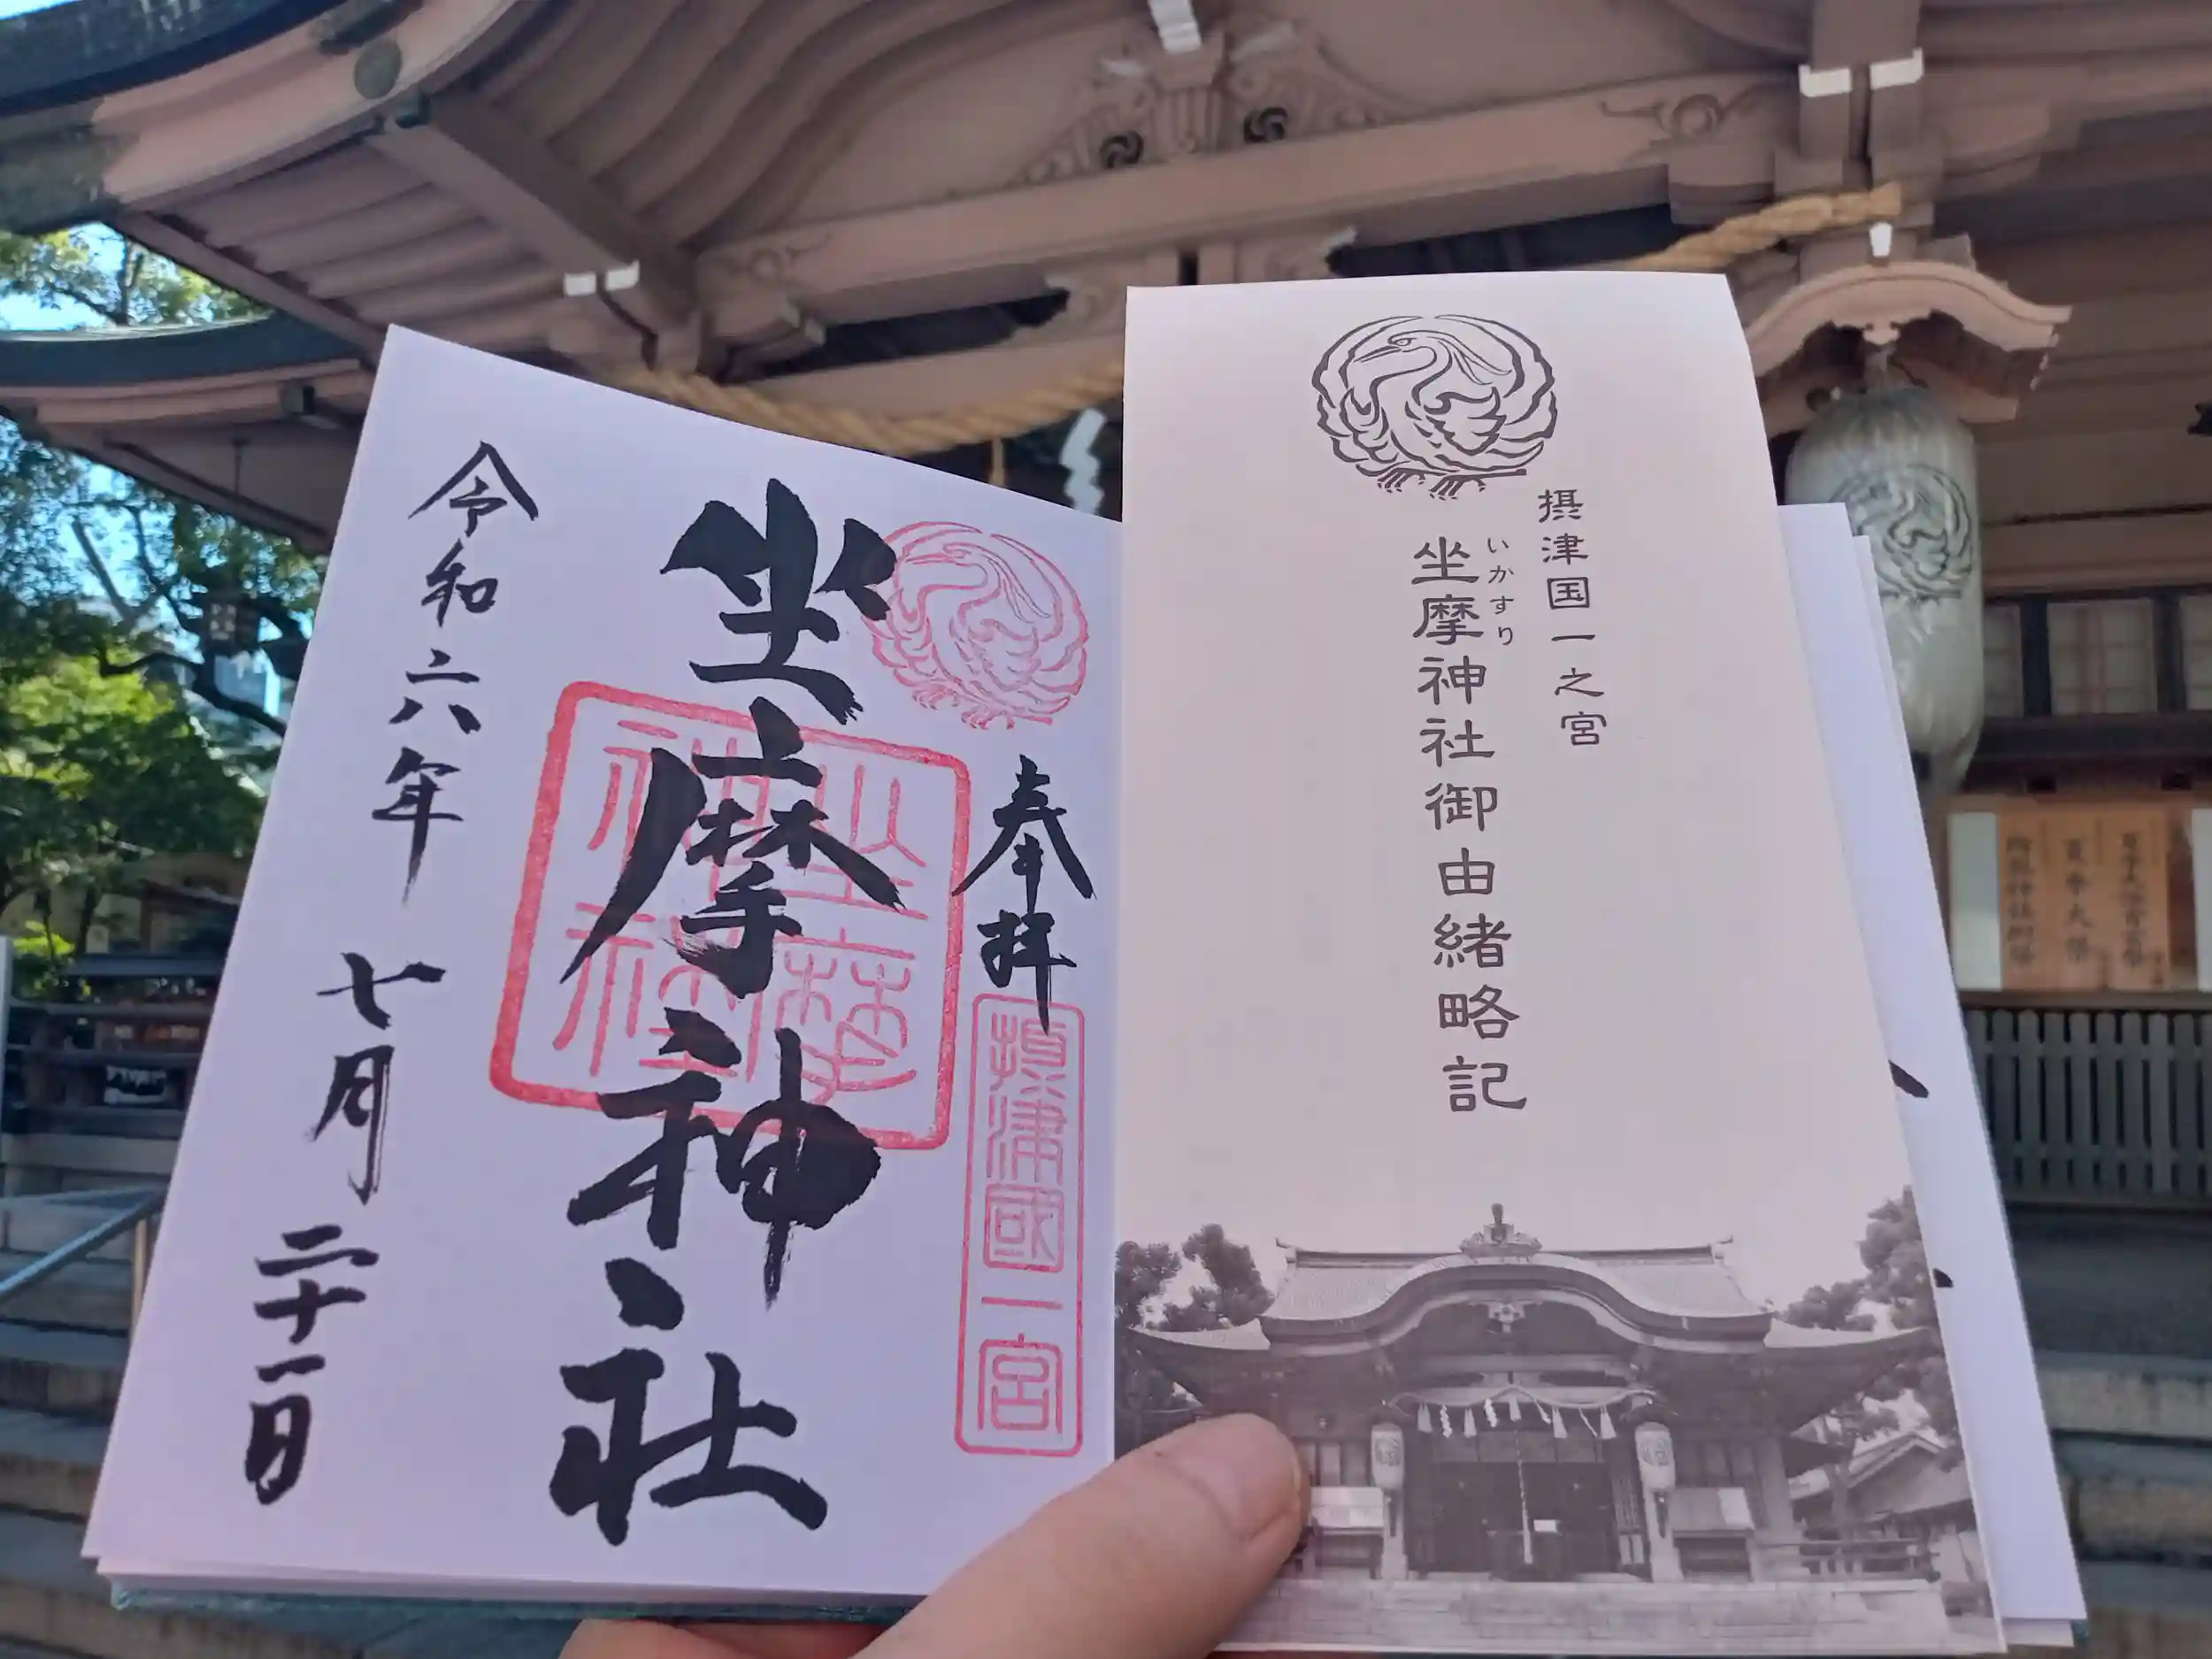 奉拝
摂津國一宮
坐摩神社
坐摩神社
令和六年 七月 二十一日
摂津国一之宮
いかすり
坐摩神社御由緒略記
夏季大祭